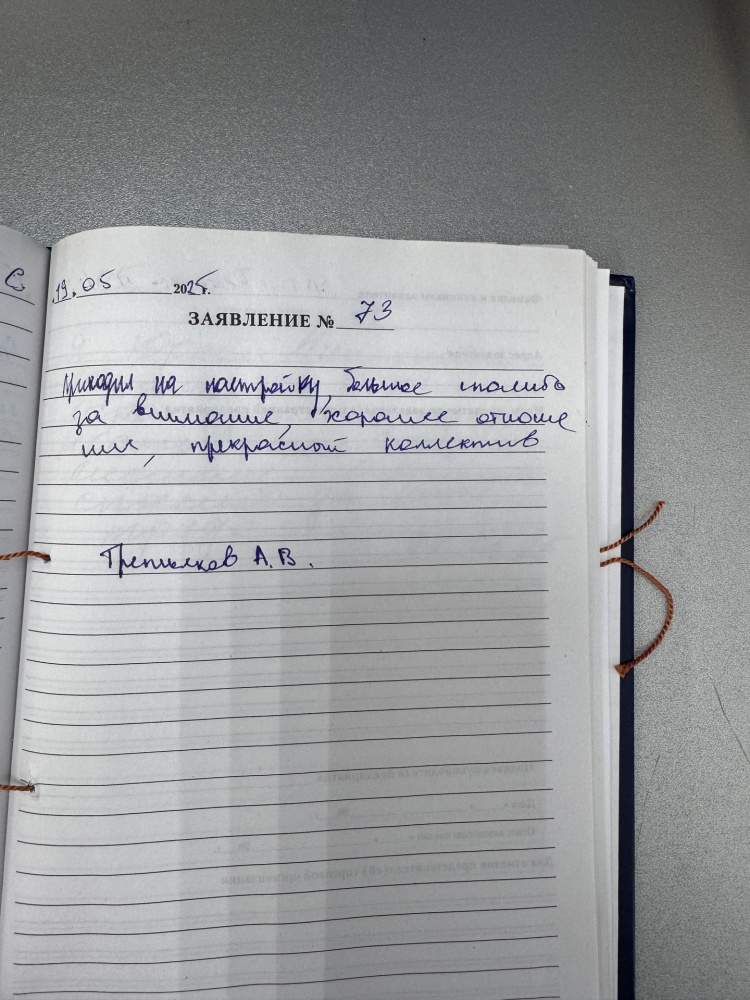 С.
19.05 2025г.
ЗАЯВЛЕНИЕ № 73
Приходил на настройку, большое спасибо
за внимание, хорошее отноше
ние, прекрасной коллектив
А.В.